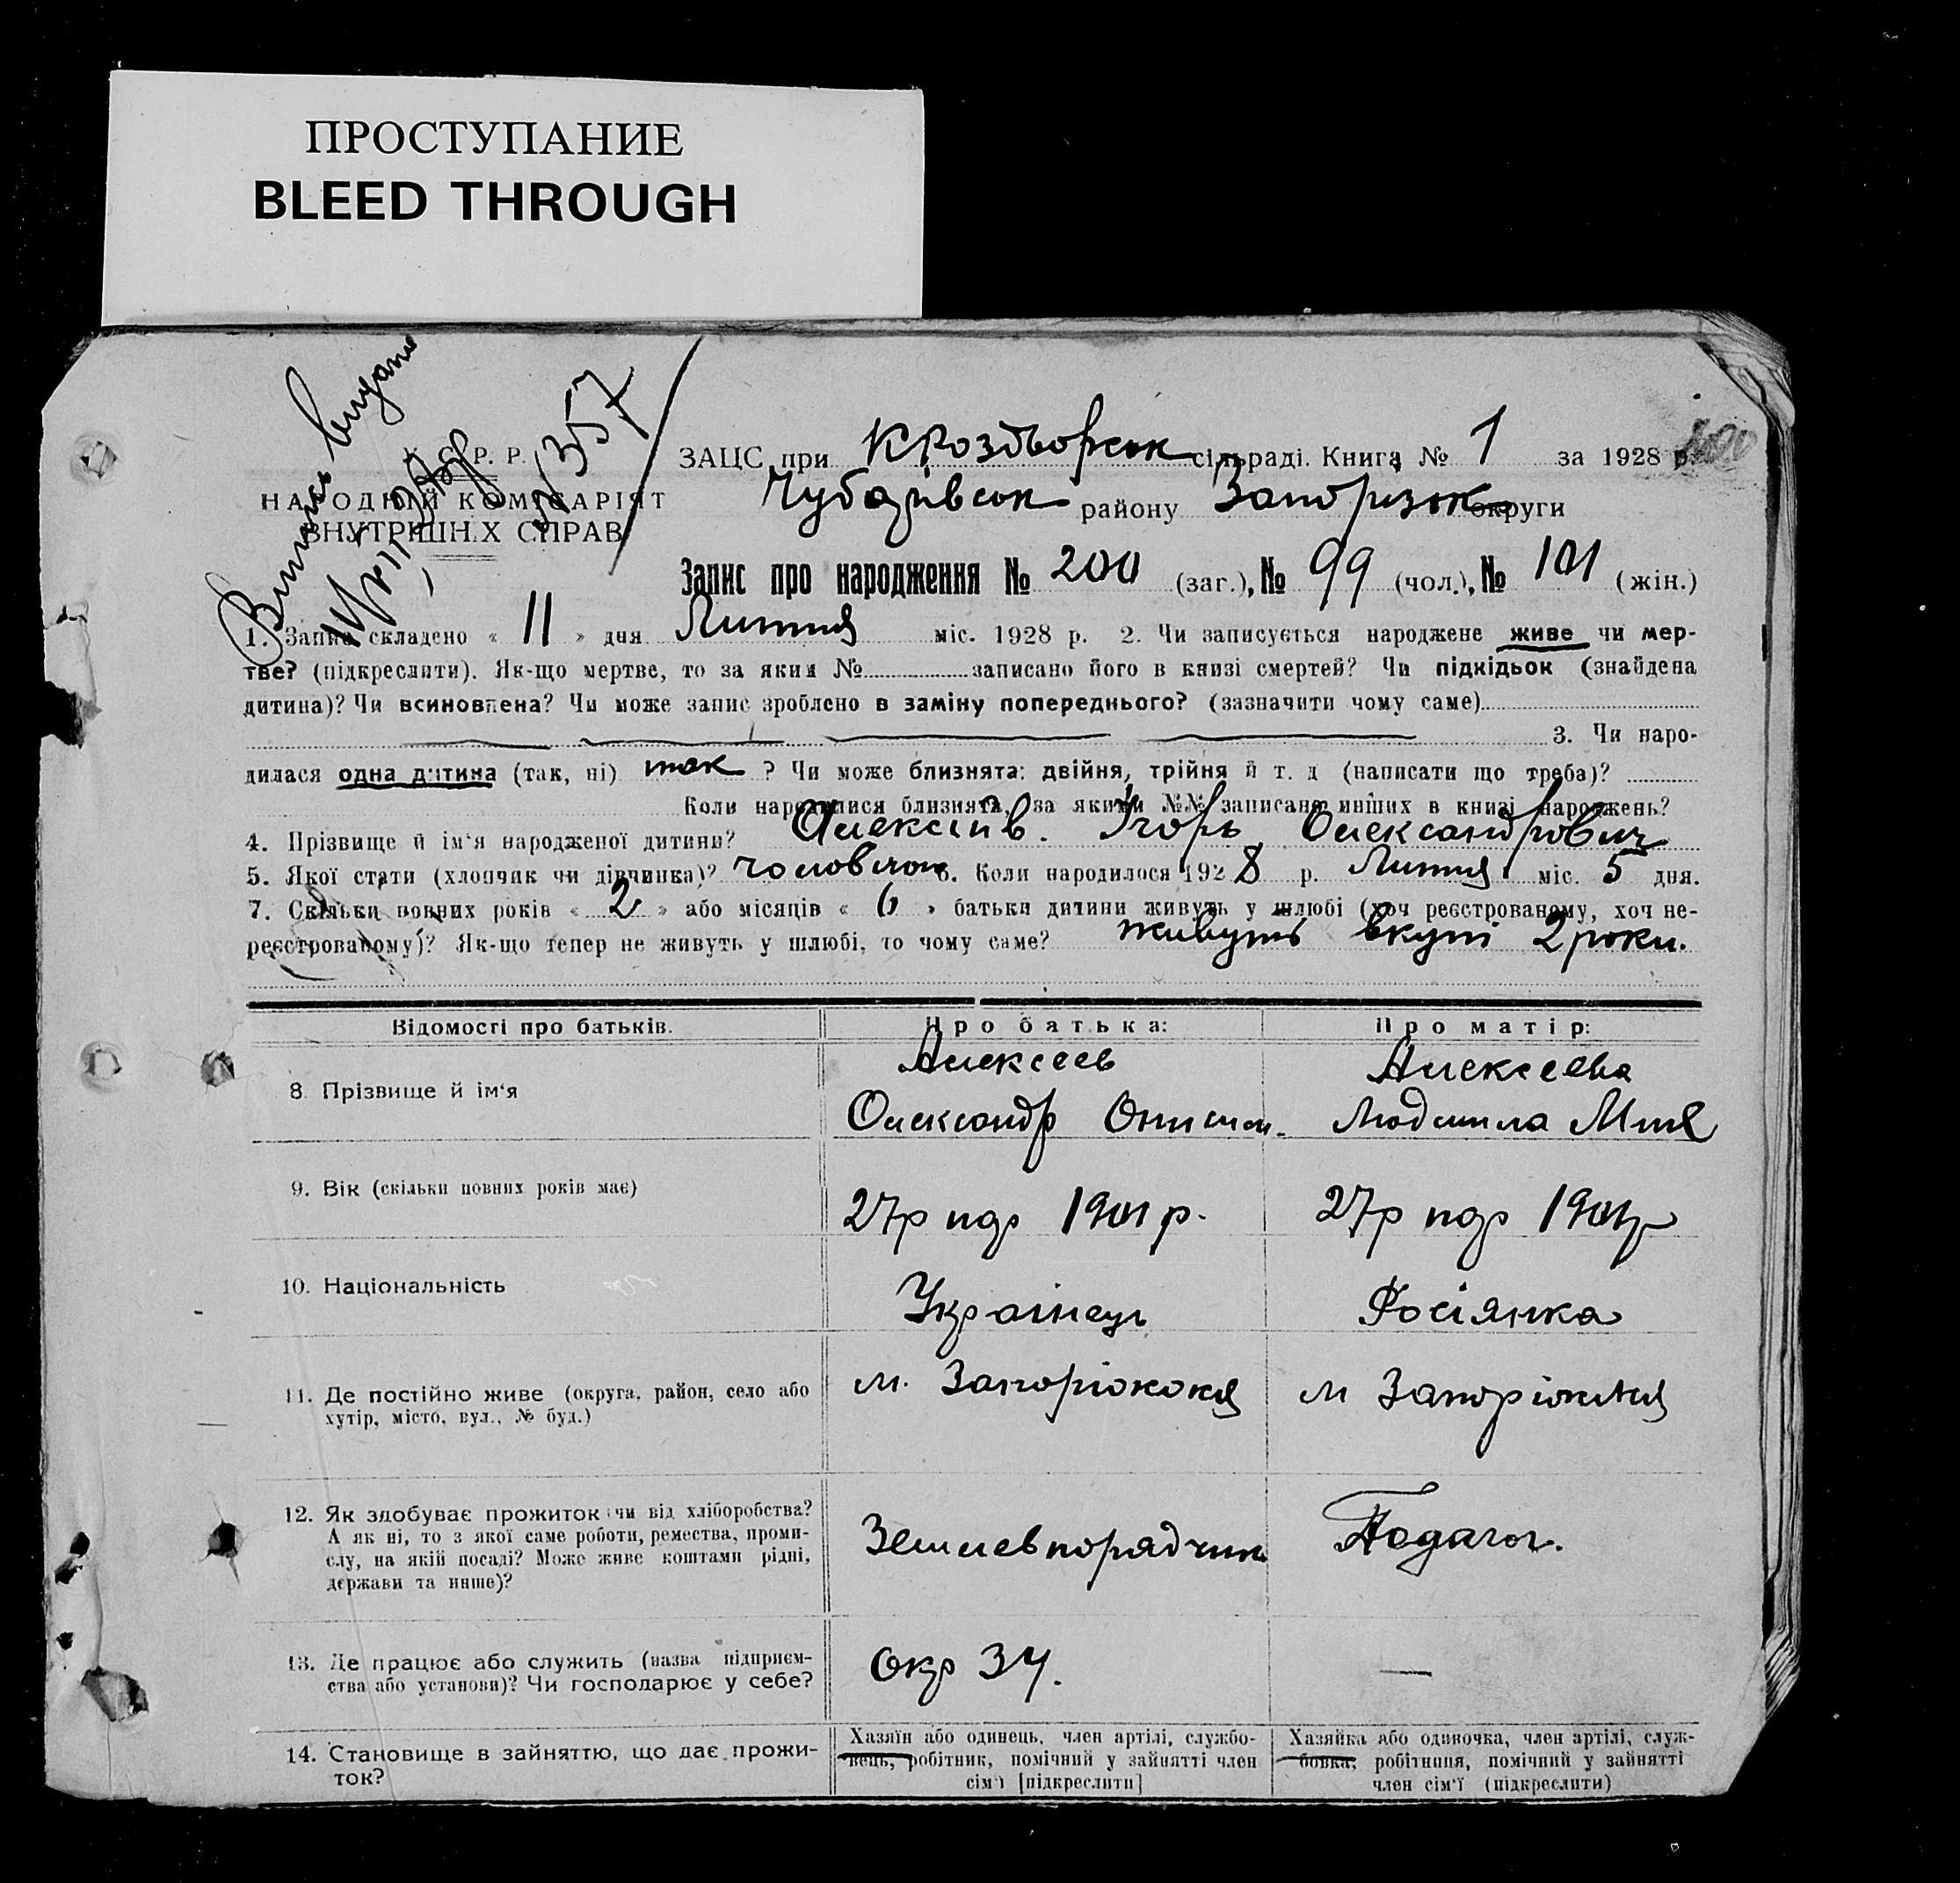 ПРОСТУПАНИЕ
BLEED THROUGH
Випись видана
357
У. С. Р. Р.
НАРОДНІЙ КОМІСАРІЯТ
ВНУТРІШНІХ СПРАВ
ЗАЦС при сільраді. Книга № 1 за 1928 р.
району Запорізьк округи
Запис про народження № 200 (заг.), № 99 (чол.), № 101 (жін.)
1. Запис складено « 11 » дня Липня міс. 1928 р. 2. Чи записується народжене живе чи мер-
тве? (підкреслити). Як-що мертве, то за яким № записано його в книзі смертей? Чи підкідьок (знайдена
дитина)? Чи всиновлена? Чи може запис зроблено в заміну попереднього? (зазначити чому саме)
3. Чи наро-
дилася одна дитина (так, ні) так ? Чи може близнята: двійня, трійня й т. д (написати що треба)?
Коли народилися близнята, за якими №№ записано инших в книзі народжень?
4. Прізвище й ім'я народженої дитини? Олексіїв. Ігорь Олександрович
5. Якої стати (хлопчик чи дівчинка)? чоловічої 6. Коли народилося 1928 р. Липня міс. 5 дня.
7. Скільки повних років « 2 » або місяців « 6 » батьки дитини живуть у шлюбі (хоч реєстрованому, хоч не-
реєстрованому)? Як-що тепер не живуть у шлюбі, то чому саме? живуть вкупі 2 роки.
Відомості про батьків. Про батька: Про матір:
8. Прізвище й ім'я Алексеев Алексеева
Олександр Людмила
9. Вік (скільки повних років має) 27р 1901 р. 27р 1901р
10. Національність Українець Росіянка
11. Де постійно живе (округа, район, село або м. Запоріжжя м Запоріжжя
хутір, місто, вул., № буд.)
12. Як здобуває прожиток: чи від хліборобства?
А як ні, то з якої саме роботи, ремества, проми- Землевпорядчик Педагог.
слу, на якій посаді? Може живе коштами рідні,
держави та инше)?
13. Де працює або служить (назва підприєм- Окр ЗУ. —
ства або установи)? Чи господарює у себе?
14. Становище в зайняттю, що дає прожи-
ток?
Хазяїн або одинець, член артілі, службо-
вець, робітник, помічний у зайнятті член
сім'ї [підкреслити]
Хазяйка або одиночка, член артілі, служ-
бовка, робітниця, помічний у зайнятті
член сім'ї (підкреслити)